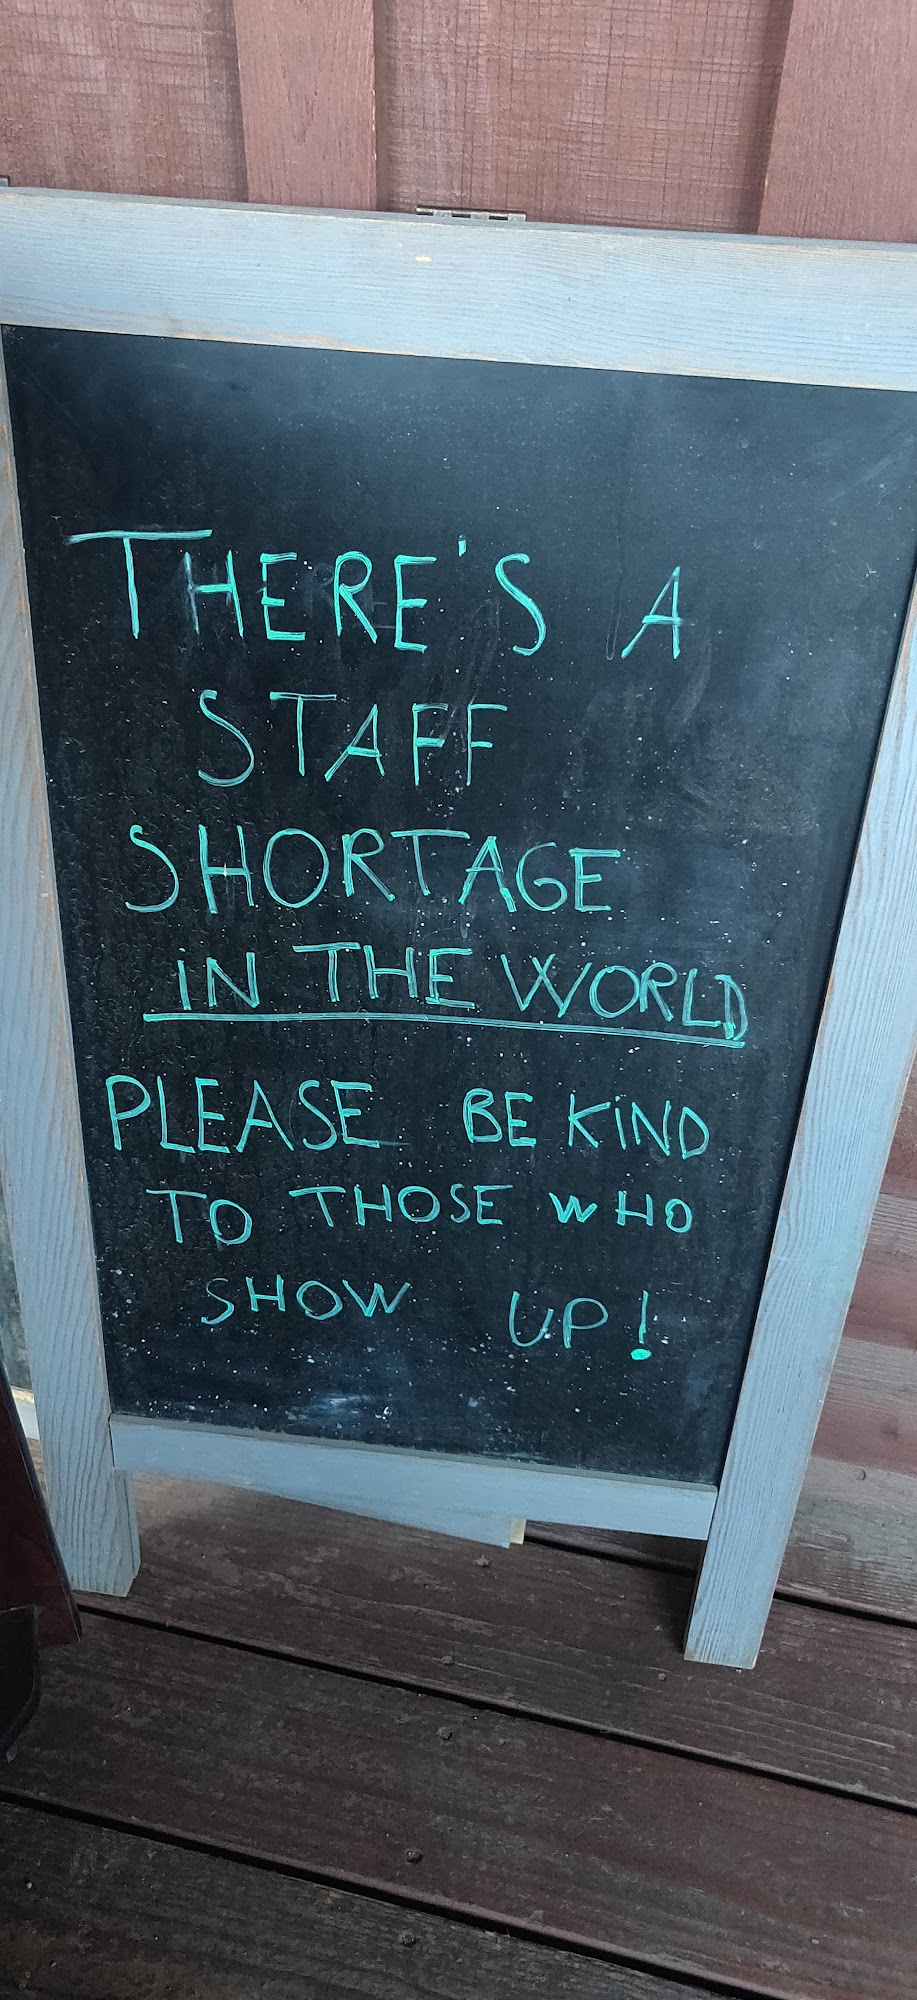 THERE'S A
STAFF
SHORTAGE
IN THE WORLD
PLEASE BE KIND
TO THOSE WHO
SHOW UP!